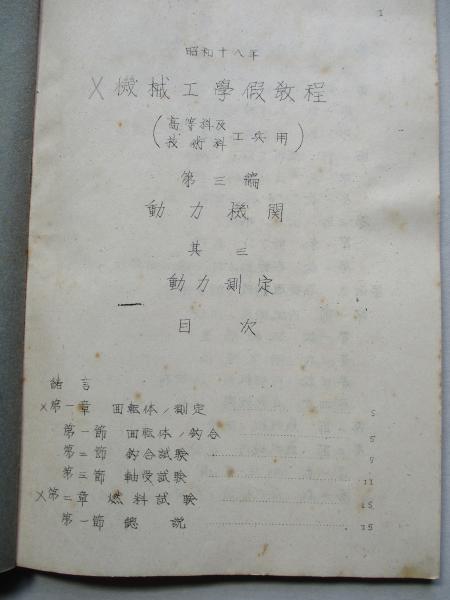 1
昭和十八年
X 機械工學假敎程
(高等科及技術科工兵用)
第三編
動力機関
其三
動力測定
目次
緒言
X第一章 回転体ノ測定 5
第一節 回転体ノ釣合 5
第二節 釣合試験 9
第三節 軸受試験 11
X第二章 燃料試験 15
第一節 總説 15